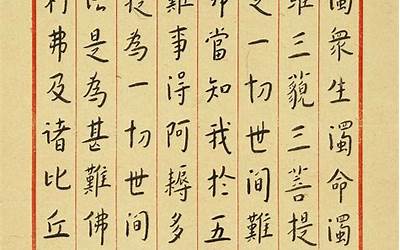 濁衆生濁命濁
羅三藐三菩提
是一切世間難
弗當知我於五
難事得阿耨多
提為一切世間
法是為甚難佛
利弗及諸比丘